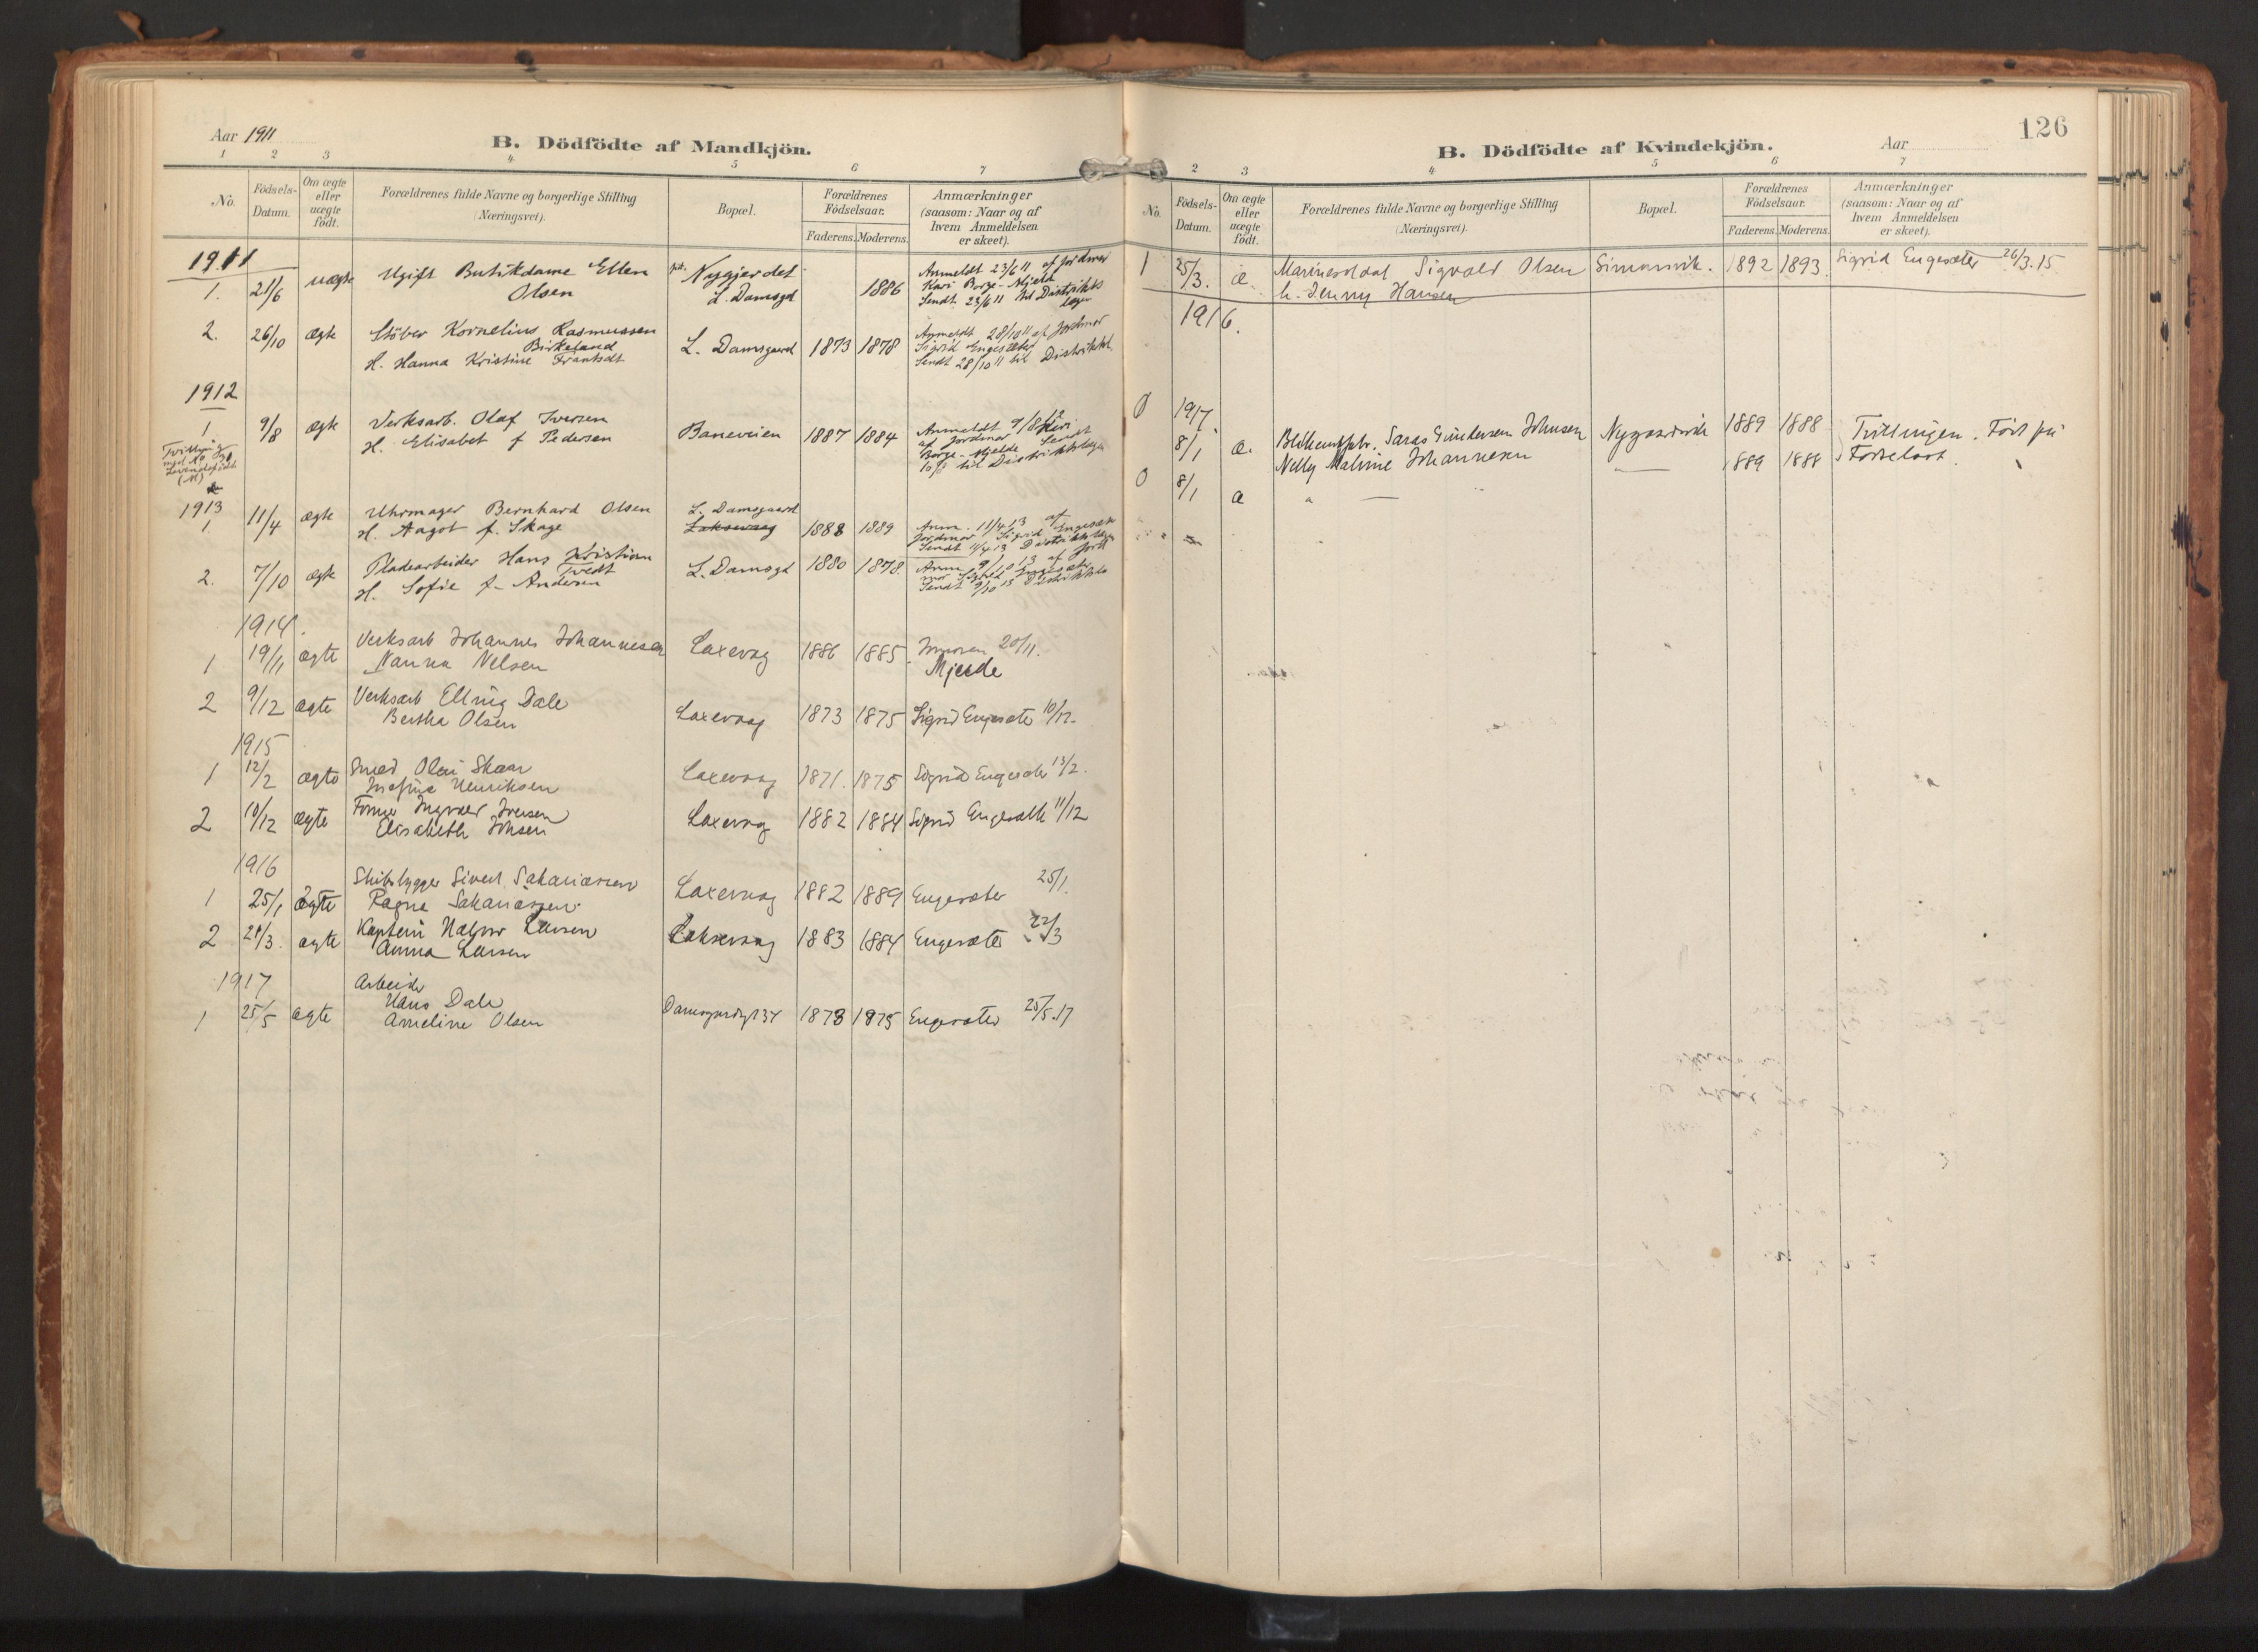 Aar 1911
B. Dödfödte af Mandkjön.
1 2 3 4 5 6 7
No.
Födsels-Datum.
Om ægte eller uægte födt.
Forældrenes fulde Navne og borgerlige Stilling (Næringsvei).
Bopæl.
Forældrenes Födselsaar.
Faderens. Moderens.
Anmærkninger (saasom: Naar og af hvem Anmeldelsen er skeet).
1911
1. 21/6 uægte Ugift Butikdame Ellen Nygjerdet 1886 Anmeldt 23/6 11 af Jordmor
Olsen L. Damsgd Kari Borge-Mjelde
Sendt 23/6 11 til Distriktslægen
2. 26/10 ægte Stöber Kornelius Rasmussen L. Damsgaard 1873 1878 Anmeldt 28/10 11 af Jordmor
Birkeland Sigrid Engesæter
H. Hanna Kristine Frantsdt Sendt 28/10 11 til Distriktsl.
1912
1. 9/8 ægte Verksarb. Olaf Iversen Baneveien 1887 1884 Anmeldt 9/8 12
H. Elisabet f Pedersen af Jordmor Kari
Borge-Mjelde Sendt
10/8 til Distriktslægen
Tvilling
med No
Levendefödte
(M)
1913
1. 11/4 ægte Uhrmager Bernhard Olsen L. Damsgaard 1888 1889 Anm. 11/4 13 af
H. Aagot f. Skage Laksevaag Jordmor Sigrid Engesæt
Sendt 11/4 13 Distriktslægen
2. 7/10 ægte Pladearbeider Hans Kristian L. Damsgd 1880 1878 Anm. 9/10 13 af Jord
Tvedt mor Sigrid Engesæter
H. Sofie f. Andersen Sendt 9/10 13 Distriktslæ
1914.
1 19/11 ægte Verksarb Johannes Johannesen Laxevag 1886 1885 20/11.
Nanna Nelsen Mjelde
2 9/12 ægte Verksarb Elling Dale Laxevaag 1873 1875 Sigrid Engesæter 10/12.
Bertha Olsen
1915
1 12/2 ægte Smed Olai Skaar Laxevaag 1871. 1875 Sigrid Engesæter 13/2.
Josefine Henriksen
2 10/12 ægte Former Ingvald Iversen Laxevag 1882 1884 Sigrid Engesæter 11/12
Elisabeth Johsen
1916
1 25/1 ægte Skibsbygger Sivert Sakariassen Laxevaag 1882 1889 Engesæter 25/1.
Ragna Sakariassen
2 21/3. ægte Kaptein Halvor Larsen Laksevaag 1883 1884 Engesæter 22/3
Anna Larsen
1917
1 25/5 ægte Arbeider
Hans Dale Damsgaardgt 34 1873 1875 Engesæter 25/5.17
Anneline Olsen
126
B. Dödfödte af Kvindekjön.
Aar
2 3 4 5 6 7
No.
Födsels-Datum.
Om ægte eller uægte födt.
Forældrenes fulde Navne og borgerlige Stilling (Næringsvei).
Bopæl.
Forældrenes Födselsaar.
Faderens. Moderens.
Anmærkninger (saasom: Naar og af hvem Anmeldelsen er skeet).
1 25/3. æ. Marinesoldat Sigvald Olsen Simonsvik. 1892 1893. Sigrid Engesæter 26/3.15
h. Jenny Hansen
1916.
1917.
0 8/1 æ. Gundersen Johnsen 1889 1888 Tvillinger. Fört på
Nelly Malvine Johannesen
0 8/1 æ " — " — 1889 1888